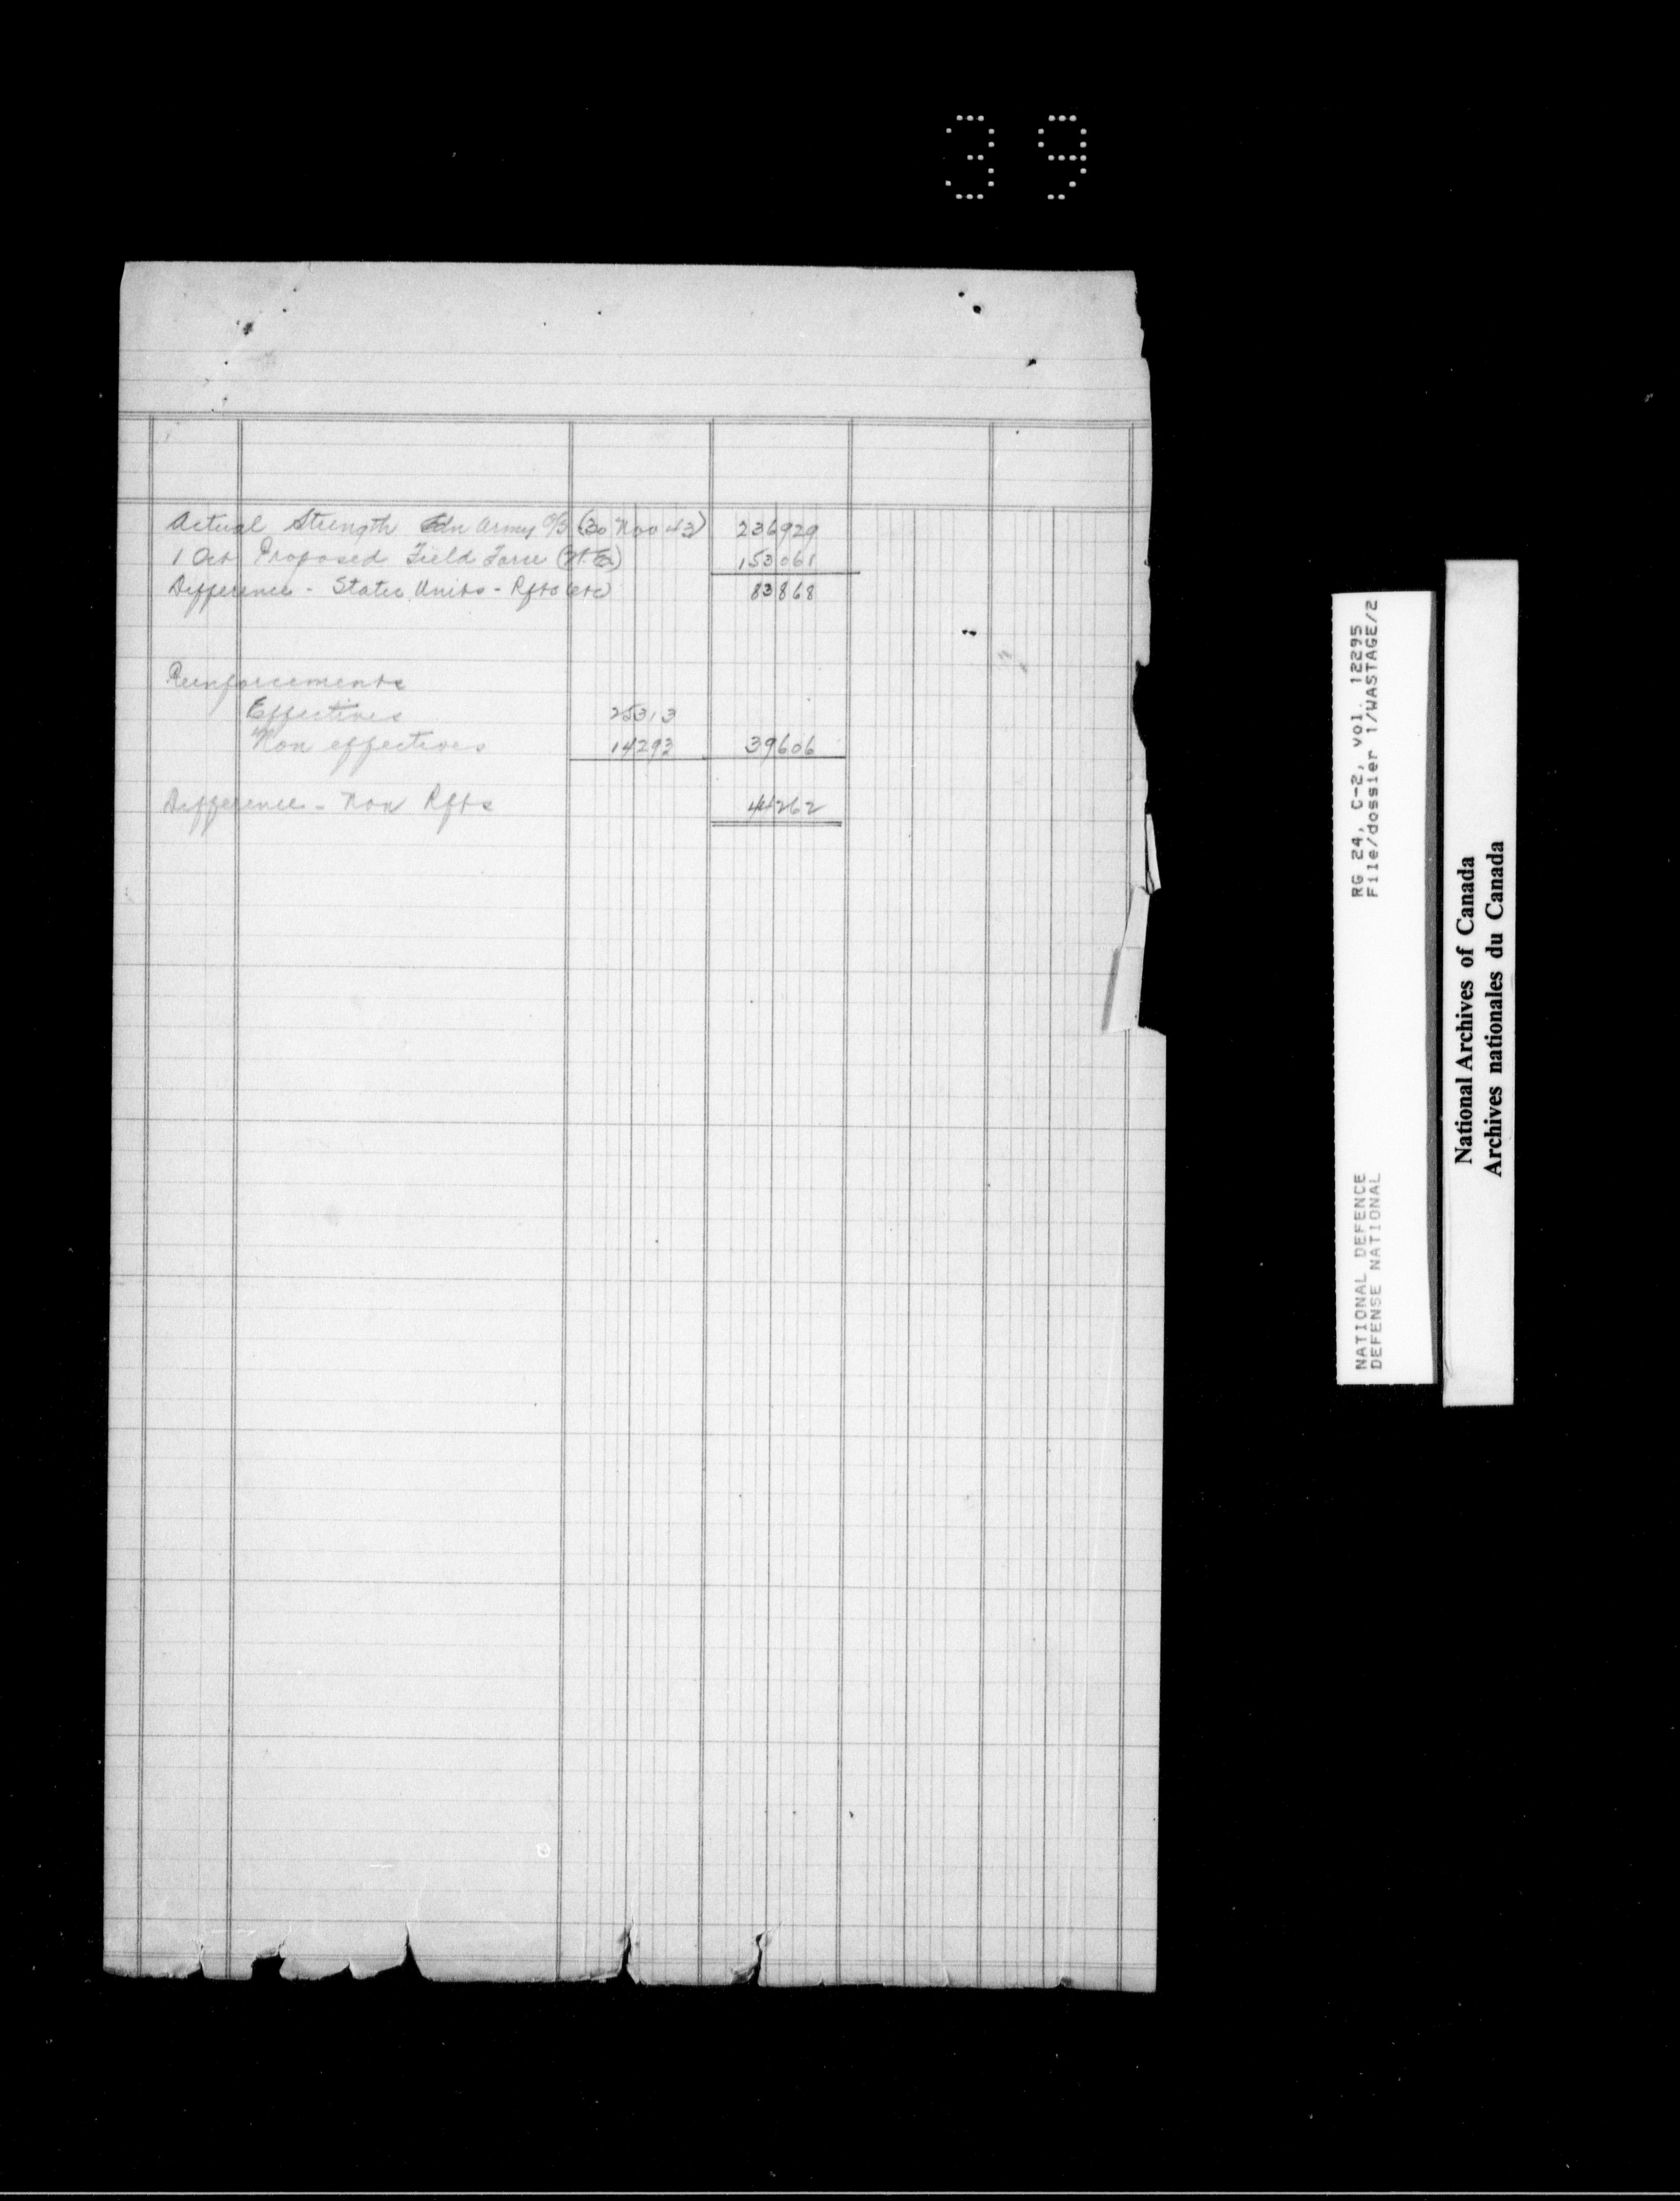 39
Actual Strength Cdn Army O/S (30 Nov 43) 236929
1 Oct Proposed Field Force (W.E.) 153061
Difference - Static Units - Rfts etc) 83868
Reinforcements
Effectives 25313
Non effectives 14293 39606
Difference - Non Rfts 44262
RG 24, C-2, vol. 12295
File/dossier 1/WASTAGE/2
NATIONAL DEFENCE
DEFENSE NATIONAL
National Archives of Canada
Archives nationales du Canada